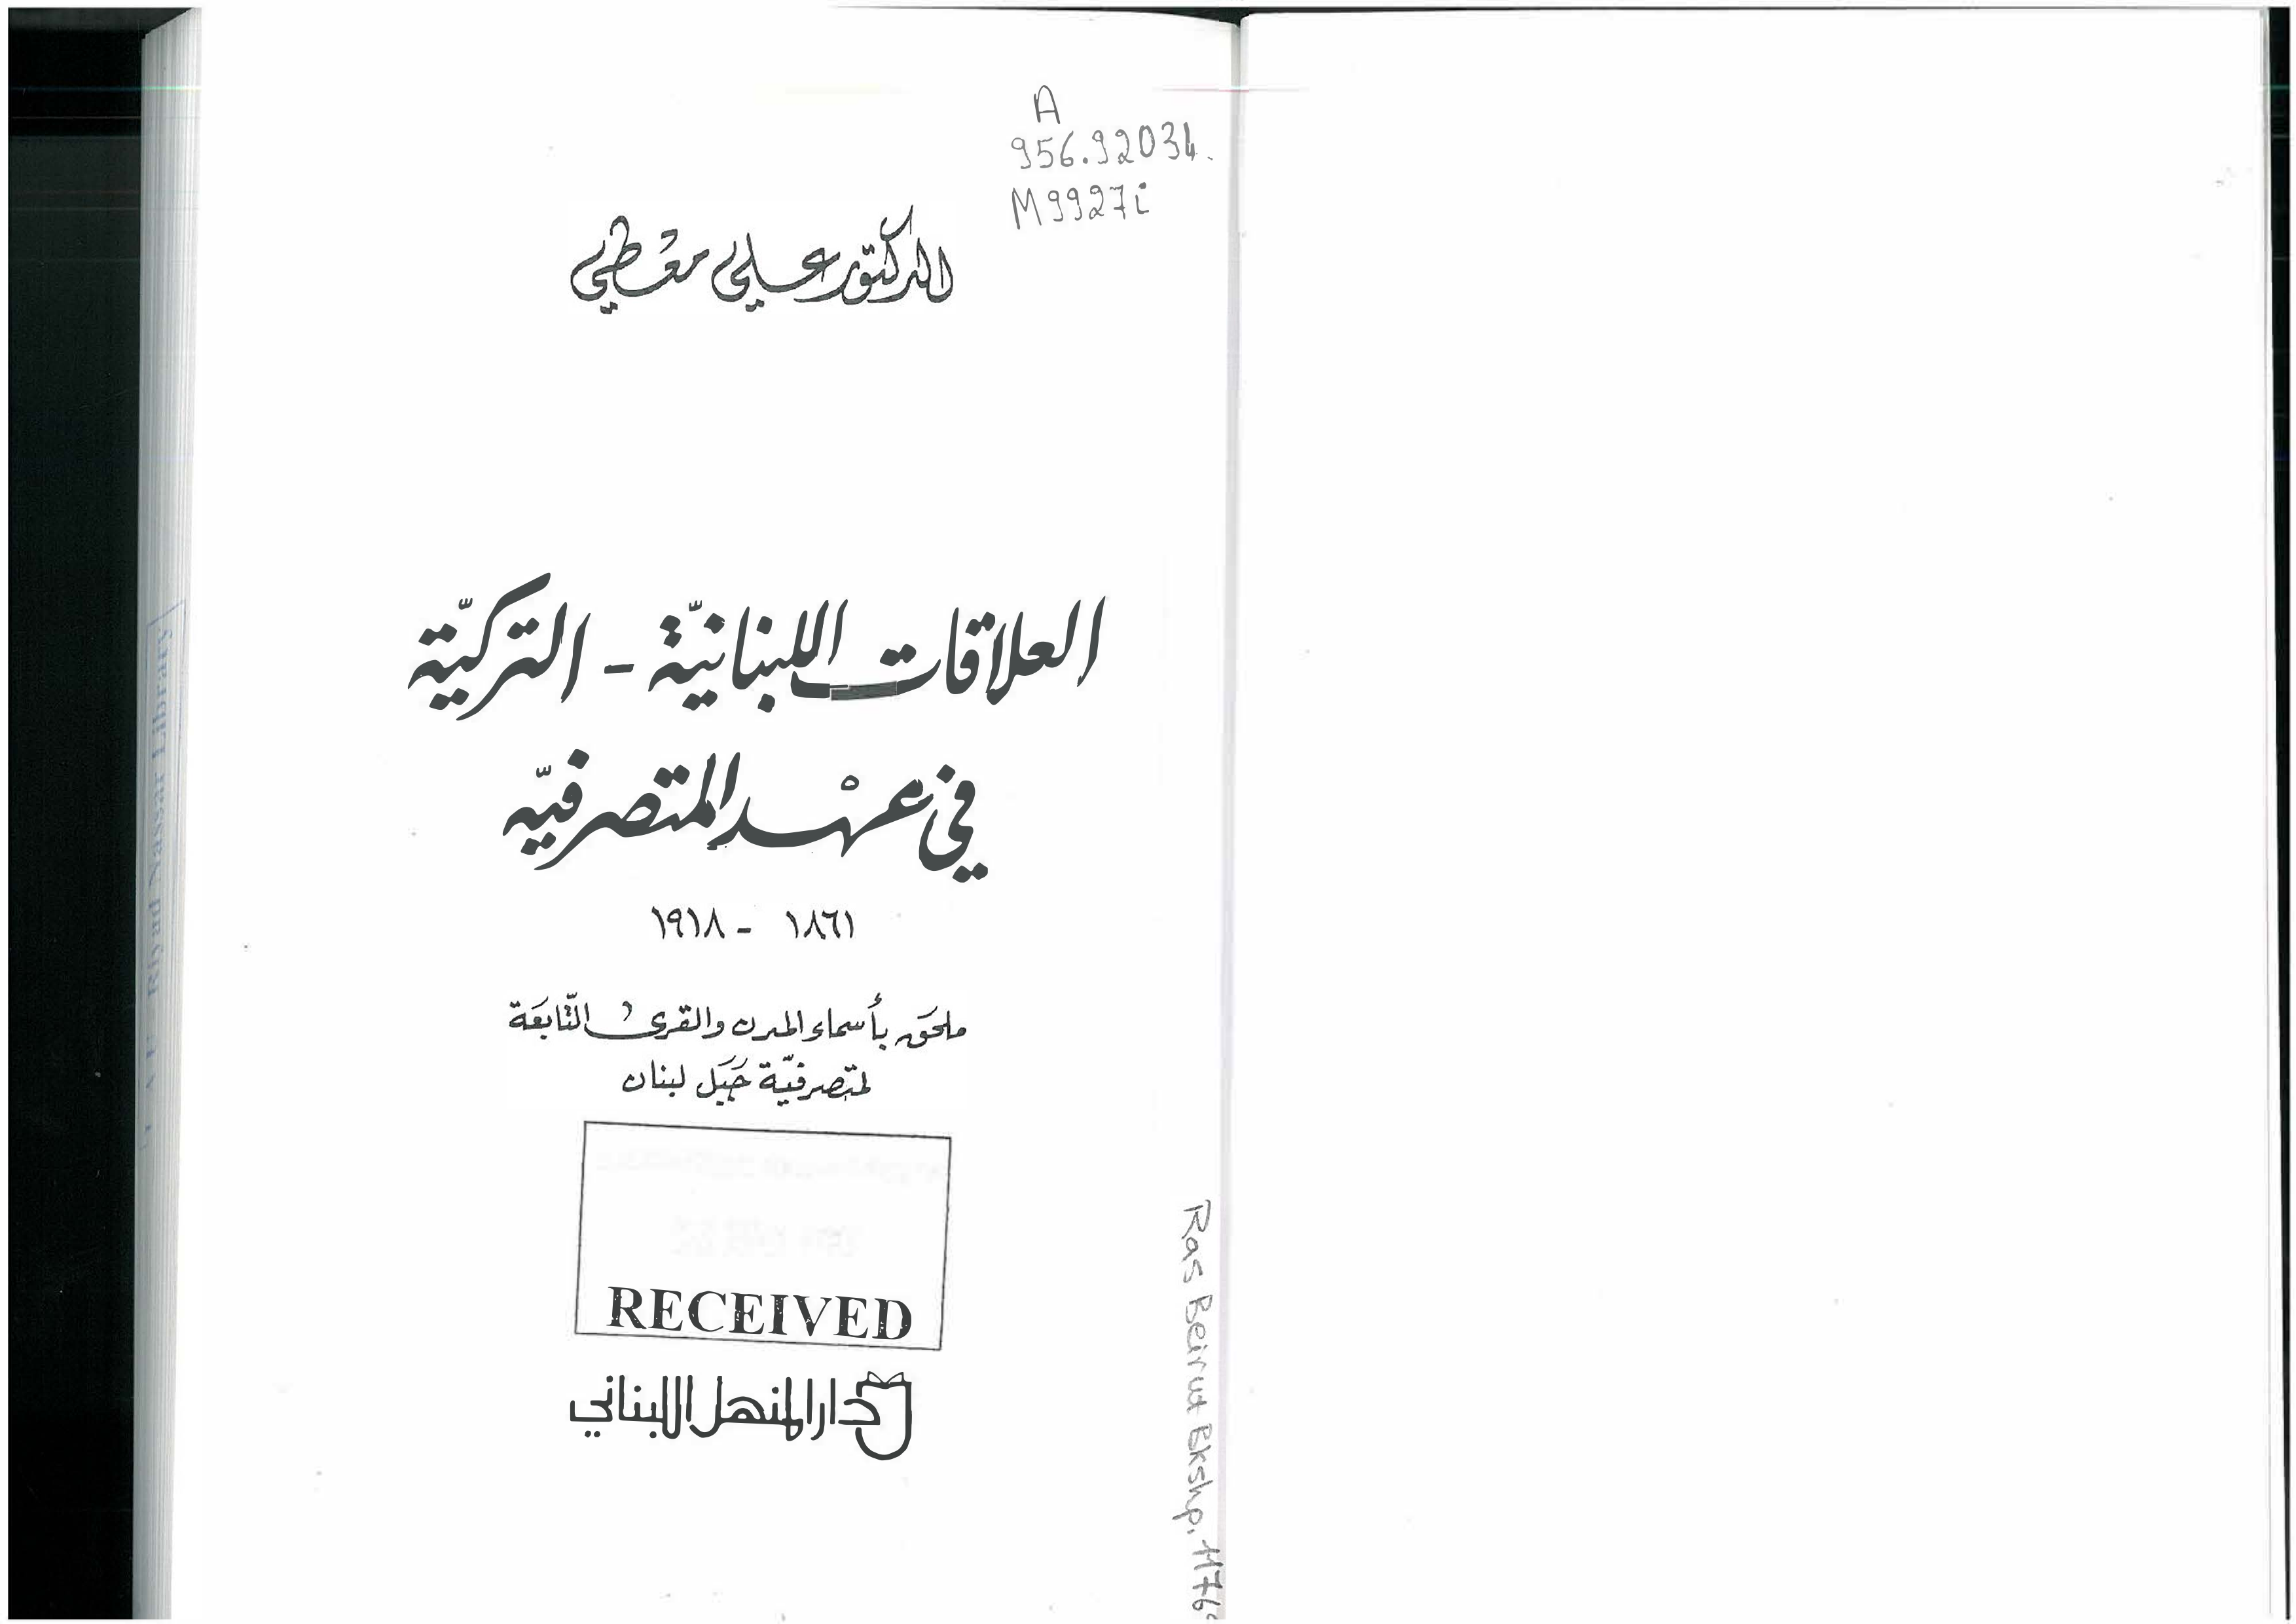 A
956.92034.
M9927i
الدكتور علي معطي
العلاقات اللبنانيّة - التركيّة
في عهْد المتصرفيّه
١٨٦١ - ١٩١٨
ملحَق بأسماء المدن والقرى التّابعَة
لمتصرفيّة جَبَل لبنان
RECEIVED
دار المنهل اللبناني
Ras Beirut Bkshp.
Riyad Nassar Library